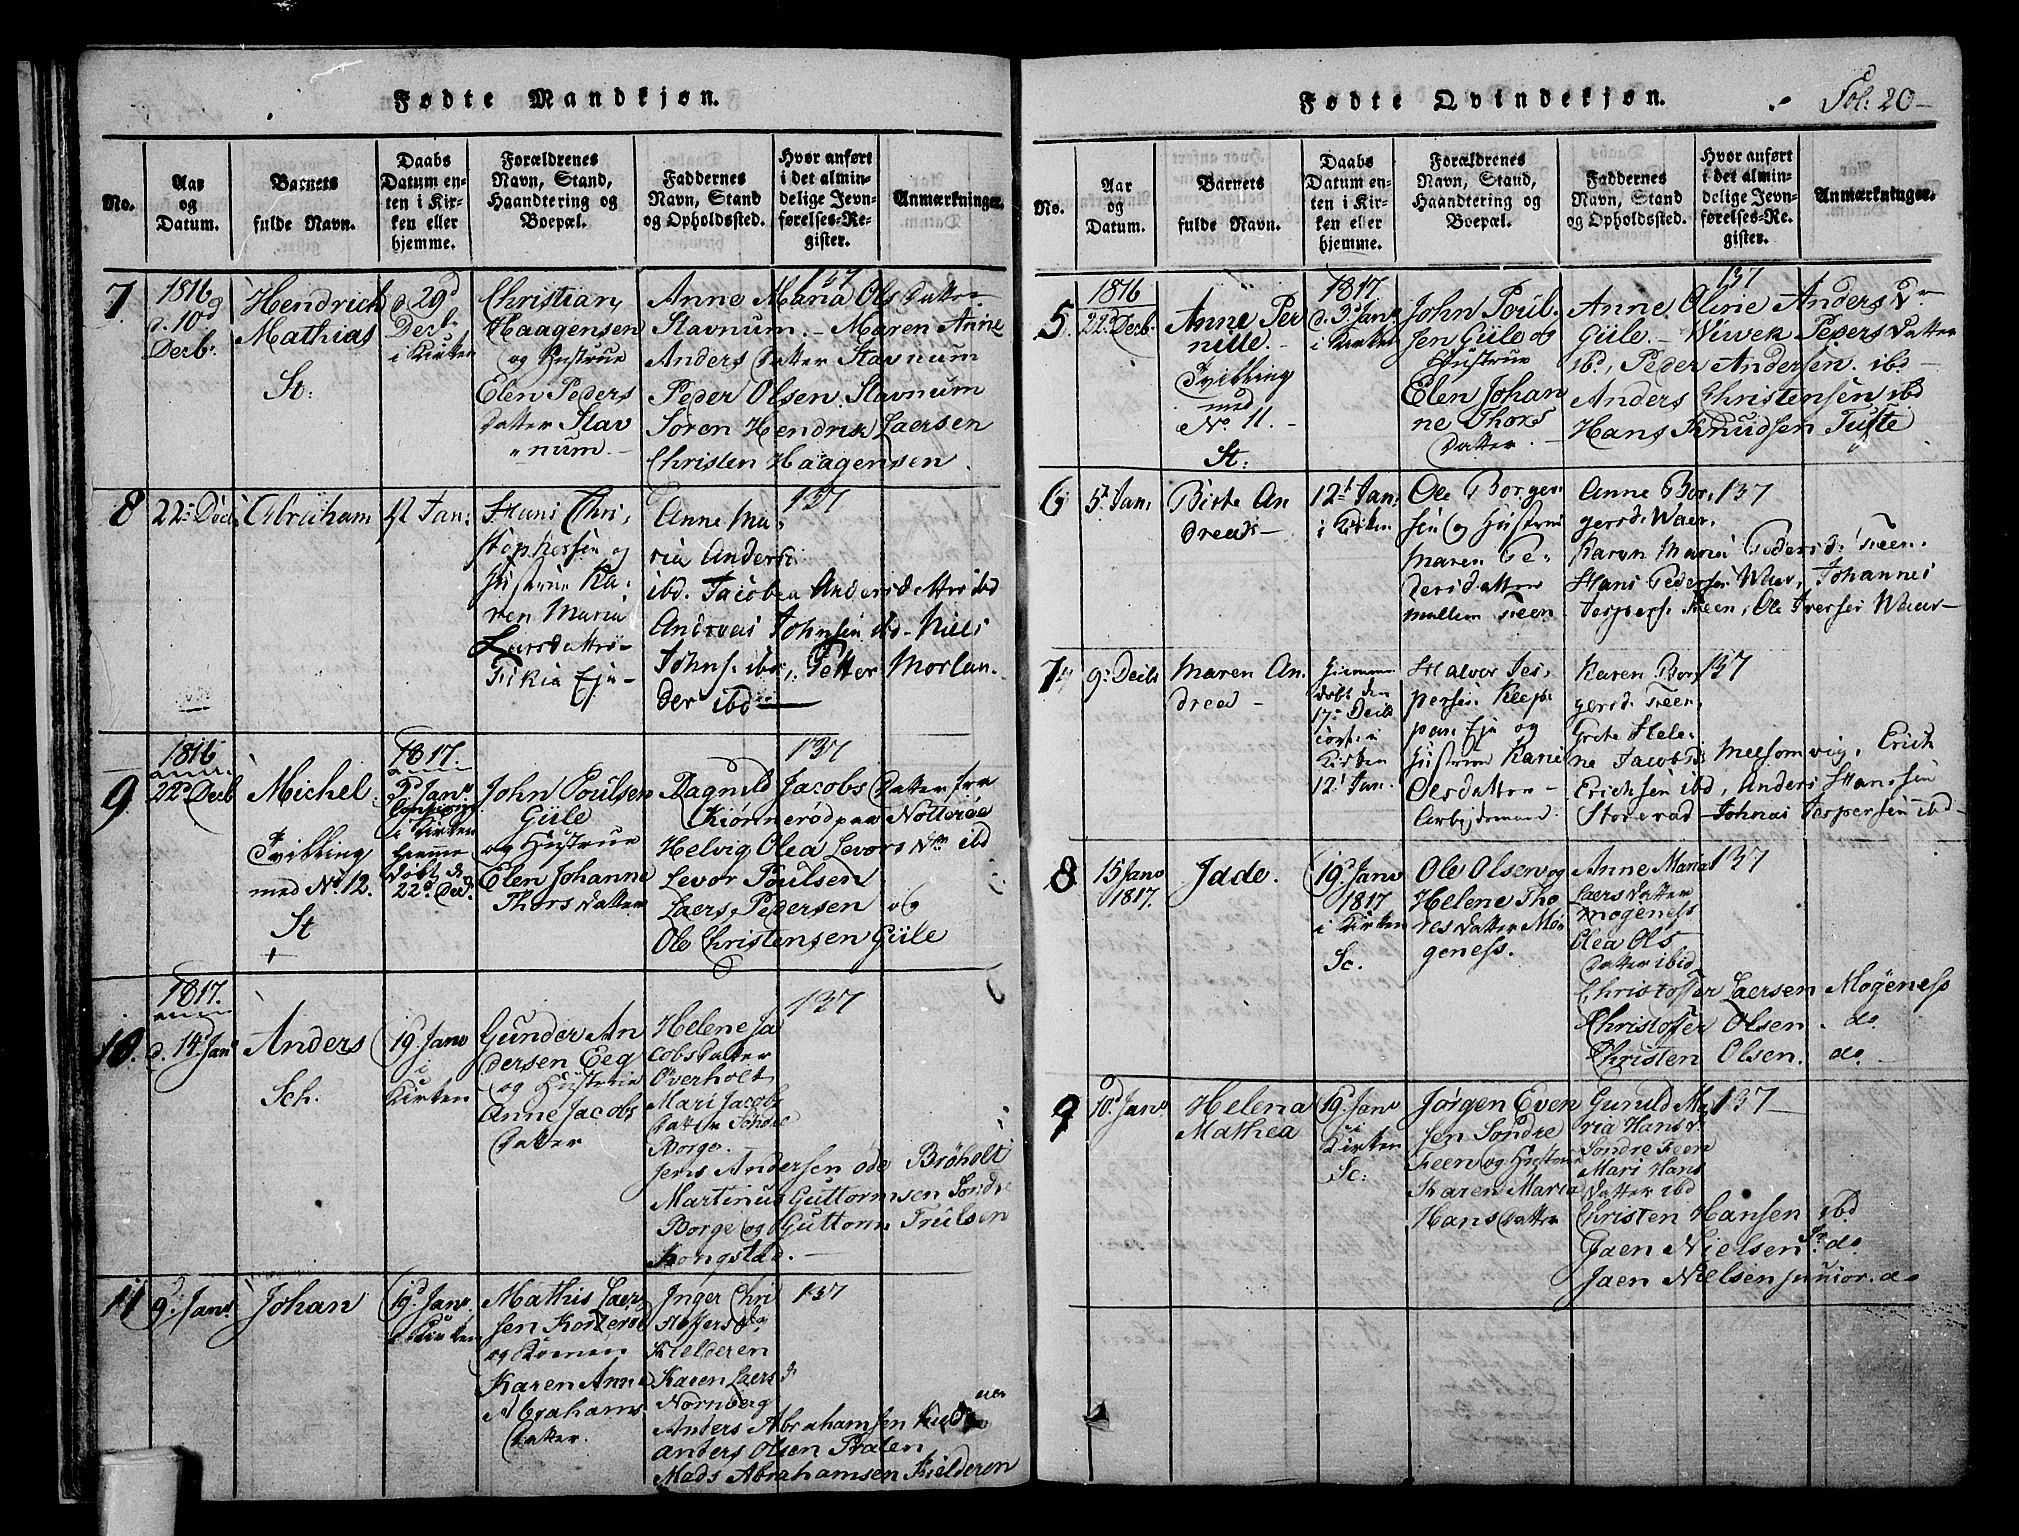 Fødte Mandkjøn.
No.
Aar
og
Datum.
Barnets
fulde Navn.
Daabs
Datum en-
ten i Kir-
ken eller
hjemme.
Forældrenes
Navn, Stand,
Haandtering og
Boepæl.
Faddernes
Navn, Stand
og Opholdssted.
Hvor anført
i det almin-
delige Jevn-
førelses-Re-
gister.
Anmærkninger.
7
1816
d. 10d
Decb.
Hendrich
Mathias
St:
d 29d
Decb.
i Kirken
Christian
Haagensen
og Hustrue
Elen Peders
Datter Slav
"num.
137
Anne Maria Ols Datter
Slavnum. - Maren Anne
Anders Datter Slavnum
Peder Olsen. Slavnum
Søren Hendrik Laersen
Christen Haagensen.
8
22: Decb
Abraham
Jan:
Hans Chri,
stophersen og
Hustrue Ka,
ren Maria
Larsdatter
Eje
137
Anne Ma,
ria Anders
ibd. Jacobea Andersdatter ibd
Andreas Johnsen ibd. Niels
Johns. ibd. Petter Morlan-
der ibd
9
1816
22d Decb
Michel
Tvilling
med No. 12.
St
+
1817.
3d Janv
i Kirken
hjemme
døbt d.
22d Dec.
John Poulsen
Güle
og Hustrue
Elen Johanne
Thorsdatter
137
Ragnild Jacobs Datter fra
Kiønnerød paa Nøtterøe
Helvig Olea Levors Dtr ibd
Levor Poulsen
Laers Pedersen og
Ole Christensen Güle
10.
1817.
d. 14 Jan
Anders
Sch.
19d Janv
i
Kirken
Gunder An
dersen Eeg
og Hustrue
Anne Jacobs
Datter
137
Helene Ja
cobsdatter
Overholt
Mari Jacobs
datter Søndre
Borge.
Jens Andersen øde Brøholt
Martinus Guttormsen Søndre
Borge og Guttorm Trulsen
Kongstad.
11
9d Janv.
Johan
19d Janv.
i Kirken
Mathis Laer
sen
og
Karen Anne
Abrahams
Datter.
137
Inger Chri
stoffersd.
Kielderen
Karen Laersd
Nornberg
Anders Abrahamsen
anders Olsen
Mads Abrahamsen Kielderen
Fødte Qvindekjøn.
Fol: 20
No.
Aar
og
Datum.
Barnets
fulde Navn.
Daabs
Datum en-
ten i Kir-
ken eller
hjemme.
Forældrenes
Navn, Stand,
Haandtering og
Boepæl.
Faddernes
Navn, Stand
og Opholdssted.
Hvor anført
i det almin-
delige Jevn-
førelses-Re-
gister.
Anmærkninger.
5.
1816
22d Decb.
Anne Per
nille.
Tvilling
med
No 11.
St:
1817
d. 3d Janv
i Kirken
John Poul
sen Güle og
Hustrue
Elen Johan
ne Thors
Datter.
137
Anne Olivie Anders Dtr
Güle. - Wivek Peders Datter
ibd, Peder Andersen. ibd
Anders Christensen ibd
Hans Knudsen Tufte
6
5t Jan.
Birte An
drea
12t Jan:
i Kirken
Ole Borger
sen og Hustrue
Maren Pe-
dersdatter
mellem Feen
137
Anne Bor,
gersd. Waer.
Karen Maria Pedersd. Feen.
Hans Pedersen Waer, Johannes
Jespers. Feen, Ole Iversen Waer
7
9: Decb
Maren An
drea
hjemme
døbt den
17: Decb
Kirken
12t Jan.
Halvor Jes,
persen
Eje og
Hustrue Karen
Olesdatter
arbejdsmand.
137
Karen Bor,
gersd. Feen,
Grete Hele-
ne Jacobsd. Melsomvig, Erich
Erichsen ibd, Anders Hanssen
Jonas Jespersen ibd
8.
15 Janv
1817.
Jade.
19d Janv
1817
i Kirken
Sc.
Ole Olsen og
Helene Tho
resdatter Mø-
geness.
137
Anne Maria
Laersdatter
mogeness
Olea Ols
Datter ibid
Christoffer Laersen Møgeness
Christoffer Olsen. do.
Christen Olsen. do
9
10d Janv
Helena
Mathea
19d Janv
i
Kirken
Sc:
Jørgen Even
sen Søndre
Feen og Hustrue
Karen Maria
Hansdatter
137
Gunild Ma
ria Hansd.
Søndre Feen
Mari Hans
Datter ibd
Christen Hansen ibd.
Jaen Nielsen Sr. do.
Jaen Nielsen junior. do